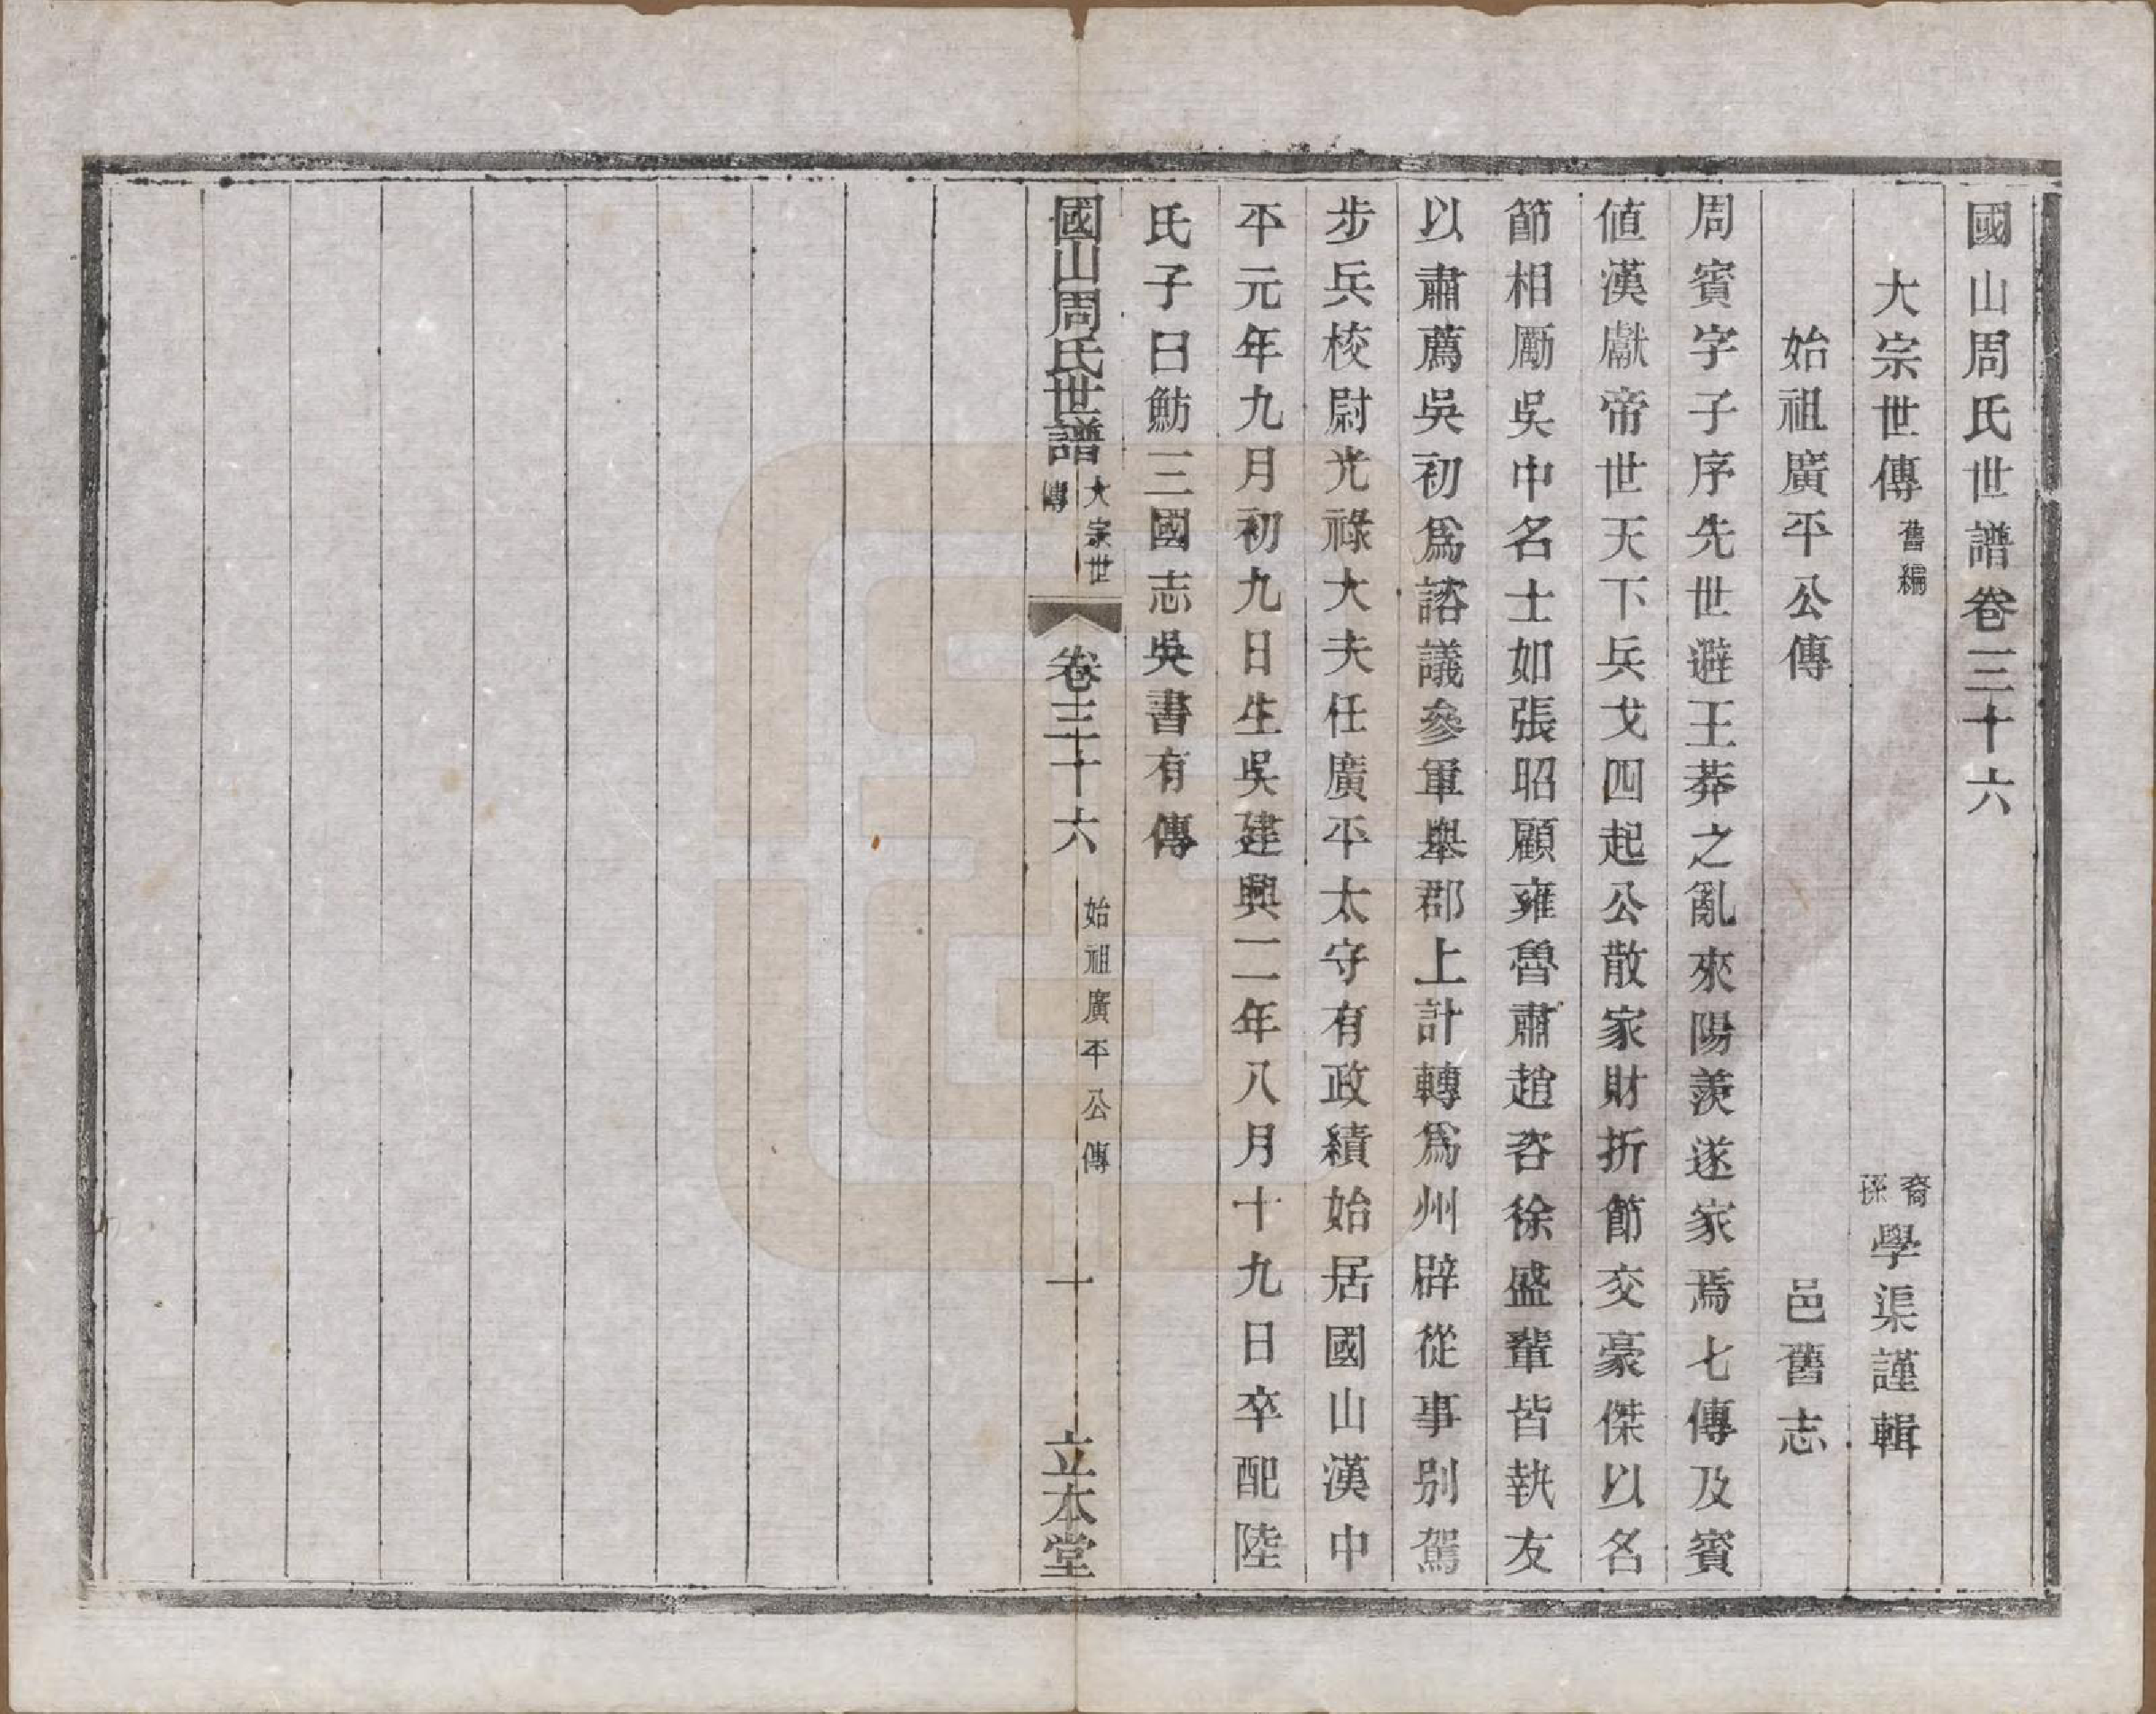 國山周氏世譜卷三十六
大宗世傳 舊編 裔孫學渠謹輯
始祖廣平公傳 邑舊志
周賓字子序先世避王莽之亂來陽羨遂家焉七傳及賓
値漢獻帝世天下兵戈四起公散家財折節交豪傑以名
節相勵吳中名士如張昭顧雍魯肅趙咨徐盛輩皆執友
以肅薦吳初爲諮議參軍舉郡上計轉爲州辟從事别駕
步兵校尉光祿大夫任廣平太守有政績始居國山漢中
平元年九月初九日生吳建興二年八月十九日卒配陸
氏子曰魴三國志吳書有傳
國山周氏世譜 大宗世傳 卷三十六 始祖廣平公傳 一 立本堂